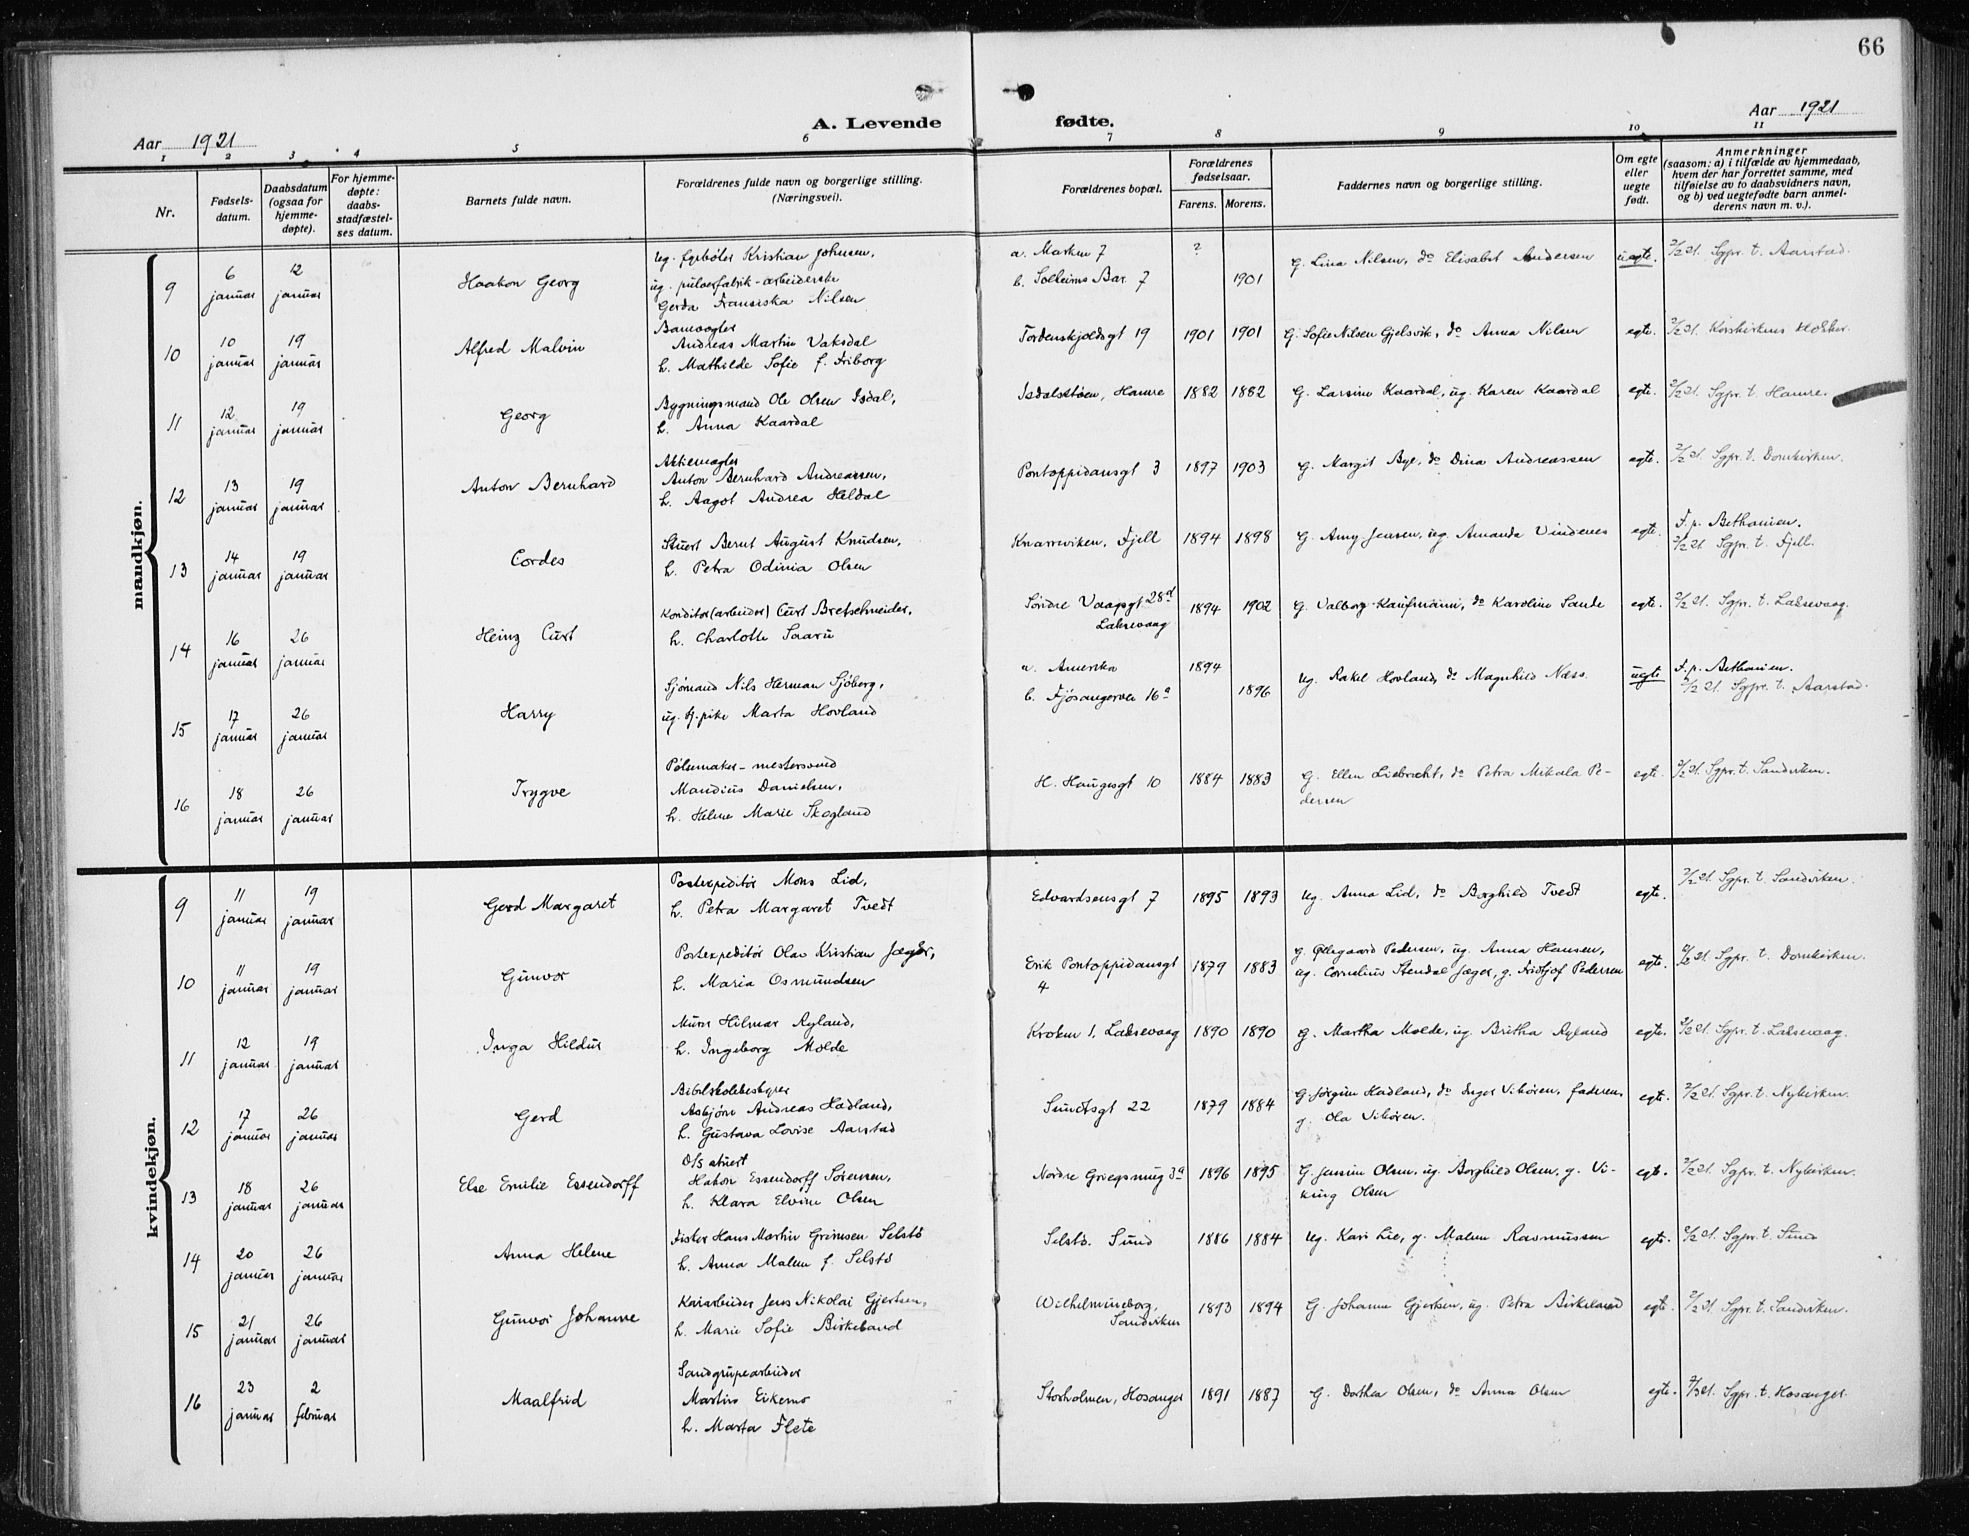 66
Aar 1921
A. Levende fødte.
Aar 1921
1 2 3 4 5 6 7 8 9 10 11
Nr.
Fødsels-
datum.
Daabsdatum
(ogsaa for
hjemme-
døpte).
For hjemme-
døpte:
daabs-
stadfæstel-
ses datum.
Barnets fulde navn.
Forældrenes fulde navn og borgerlige stilling.
(Næringsvei).
Forældrenes bopæl.
Forældrenes
fødselsaar.
Farens. Morens.
Faddernes navn og borgerlige stilling.
Om egte
eller
uegte
født.
Anmerkninger
(saasom: a) i tilfælde av hjemmedaab,
hvem der har forrettet samme, med
tilføielse av to daabsvidners navn,
og b) ved uegtefødte barn anmel-
derens navn m. v.).
mandkjøn.
9
6 januar
12 januar
Haakon Georg
ug. fyrbøter Kristian Johnsen,
ug. arbeiderske
Gerda Fransiska Nilsen
a. Marken 7
b. Solheims Bar. 7
?
1901
G. Lina Nilsen, do Elisabet Andersen
uegte.
2/2 21. Sgpr. t. Aarstad.
10
10 januar
19 januar
Alfred Malvin
Banevogter
Andreas Martin Vaksdal
h. Mathilde Sofie f. Friborg
Tordenskjoldsgt 19
1901 1901
G. Sofie Nilsen Gjelsvik, do Anna Nilsen
egte.
2/2 21. Korskirkens
11
12 januar
19 januar
Georg
Bygningsmand Ole Olsen Isdal,
h. Anna Kaardal
Isdalstøen, Hamre
1882 1882
G. Larsine Kaardal, ug. Karen Kaardal
egte.
2/2 21. Sgpr. t. Hamre.
12
13 januar
19 januar
Anton Bernhard
Aktiemægler
Anton Bernhard Andreassen,
h. Aagot Andrea Heldal
Pontoppidansgt 3
1897 1903
G. Margit Bye, do Dina Andreassen
egte.
2/2 21. Sgpr. t. Domkirken.
13
14 januar
19 januar
Cordes
Stuert Bernt August Knudsen,
h. Petra Odinia Olsen
Knarreviken, Fjell
1894 1898
G. Amy Jensen, ug. Amanda Vindenes
egte.
F. p. Bethanien.
2/2 21. Sgpr. t. Fjell.
14
16 januar
26 januar
Heinz Curt
Konditor(arbeider) Curt Bretschneider,
h. Charlotte Saaru
Søndre Vaagsgt 28d
Laksevaag
1894 1902
G. Valborg Kaufmann, do Karoline Sande
egte.
2/2 21. Sgpr. t. Laksevaag.
15
17 januar
26 januar
Harry
Sjømand Nils Herman Sjöberg,
ug. tj. pike Marta Hovland
a. Amerika
b. Fjøsangervei 16a
1894
1896
ug. Rakel Hovland, do Magnhild Næss
uegte
F. p. Bethanien.
2/2 21. Sgpr. t. Aarstad.
16
18 januar
26 januar
Trygve
Pølsemaker-mestersvend
Mandius Danielsen,
h. Helene Marie Skogland
H. Haugesgt 10
1884 1883
G. Ellen Liebrecht, do Petra Mikala Pe-
dersen
egte.
2/2 21. Sgpr. t. Sandviken.
kvindekjøn.
9
11 januar
19 januar
Gerd Margaret
Postexpeditør Mons Lid,
h. Petra Margaret Tvedt
Edvardsensgt 7
1895 1893
ug. Anna Lid, do Borghild Tvedt
egte.
2/2 21. Sgpr. t. Sandviken.
10
11 januar
19 januar
Gunvor
Postexpeditør Olav Kristian Jæger,
h. Maria Osmundsen
Erik Pontoppidansgt
4
1879 1883
G. Øllegaard Pedersen, ug. Anna Hansen,
ug. Cornelius Stendal Jæger, g. Fridtjof Pedersen
egte.
2/2 21. Sgpr. t. Domkirken.
11
12 januar
19 januar
Inga Hildur
Murer Hilmar Ryland,
h. Ingeborg Molde
Kroken 1, Laksevaag
1890 1890
g. Martha Molde, ug. Britha Ryland
egte.
2/2 21. Sgpr. t. Laksevaag.
12
17 januar
26 januar
Gerd
Bibelskolebestyrer
Asbjørn Andreas Hadland,
h. Gustava Lovise Aarstad
Sundtsgt 22
1879 1884
G. Jørgine Hadland, do Inger Vikøren, faderen,
g. Ola Vikøren.
egte.
2/2 21. Sgpr. t. Nykirken.
13
18 januar
26 januar
Else Emilie Essendorff
D/s stuert
Hakon Essendorff Sørensen,
h. Klara Elvine Olsen
Nordre Griegsmug 3a
1896 1895
G. Jensine Olsen, ug. Borghild Olsen, g. Vi-
king Olsen
egte.
2/2 21. Sgpr. t. Nykirken.
14
20 januar
26 januar
Anna Helene
Fisker Hans Martin Grimsen Selstø
h. Anna Malene f. Selstø
Selstø. Sund
1886 1884
ug. Kari Lie, g. Malene Rasmussen
egte.
2/2 21. Sgpr. t. Sund
15
21 januar
26 januar
Gunvor Johanne
Kaiarbeider Jens Nikolai Gjertsen,
h. Marie Sofie Birkeland
Wilhelmineborg,
Sandviken
1893 1894
G. Johanne Gjertsen, ug. Petra Birkeland
egte.
2/2 21. Sgpr. t. Sandviken.
16
23 januar
2 februar
Maalfrid
Sandgrupearbeider
Martin Eikemo
h. Marta Flete
Storholmen, Hosanger
1891 1887
G. Dorthea Olsen, do Anna Olsen
egte.
Sgpr. t. Hosanger.